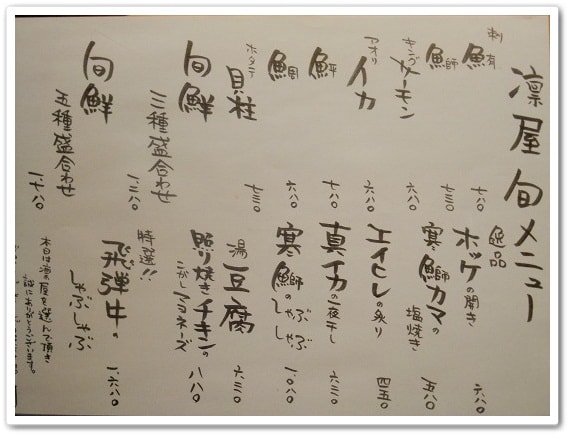 凛屋旬メニュー
刺
鮪 七八〇
鰤 七三〇
キングサーモン 六八〇
アオリイカ 六八〇
鮃 七八〇
鯛 六八〇
ホタテ貝柱 七三〇
旬鮮三種盛合わせ 一.二八〇
旬鮮五種盛合わせ 一.七八〇
逸品
ホッケの開き 六八〇
寒鰤カマの塩焼き 五八〇
エイヒレの炙り 四五〇
真イカの一夜干し 六三〇
寒鰤のしゃぶしゃぶ 一.〇八〇
湯豆腐 六三〇
照り焼きチキンのこがしマヨネーズ 八八〇
特選!!
飛騨牛のしゃぶしゃぶ 一.六八〇
本日は凛の屋を選んで頂き
誠にありがとうございます。